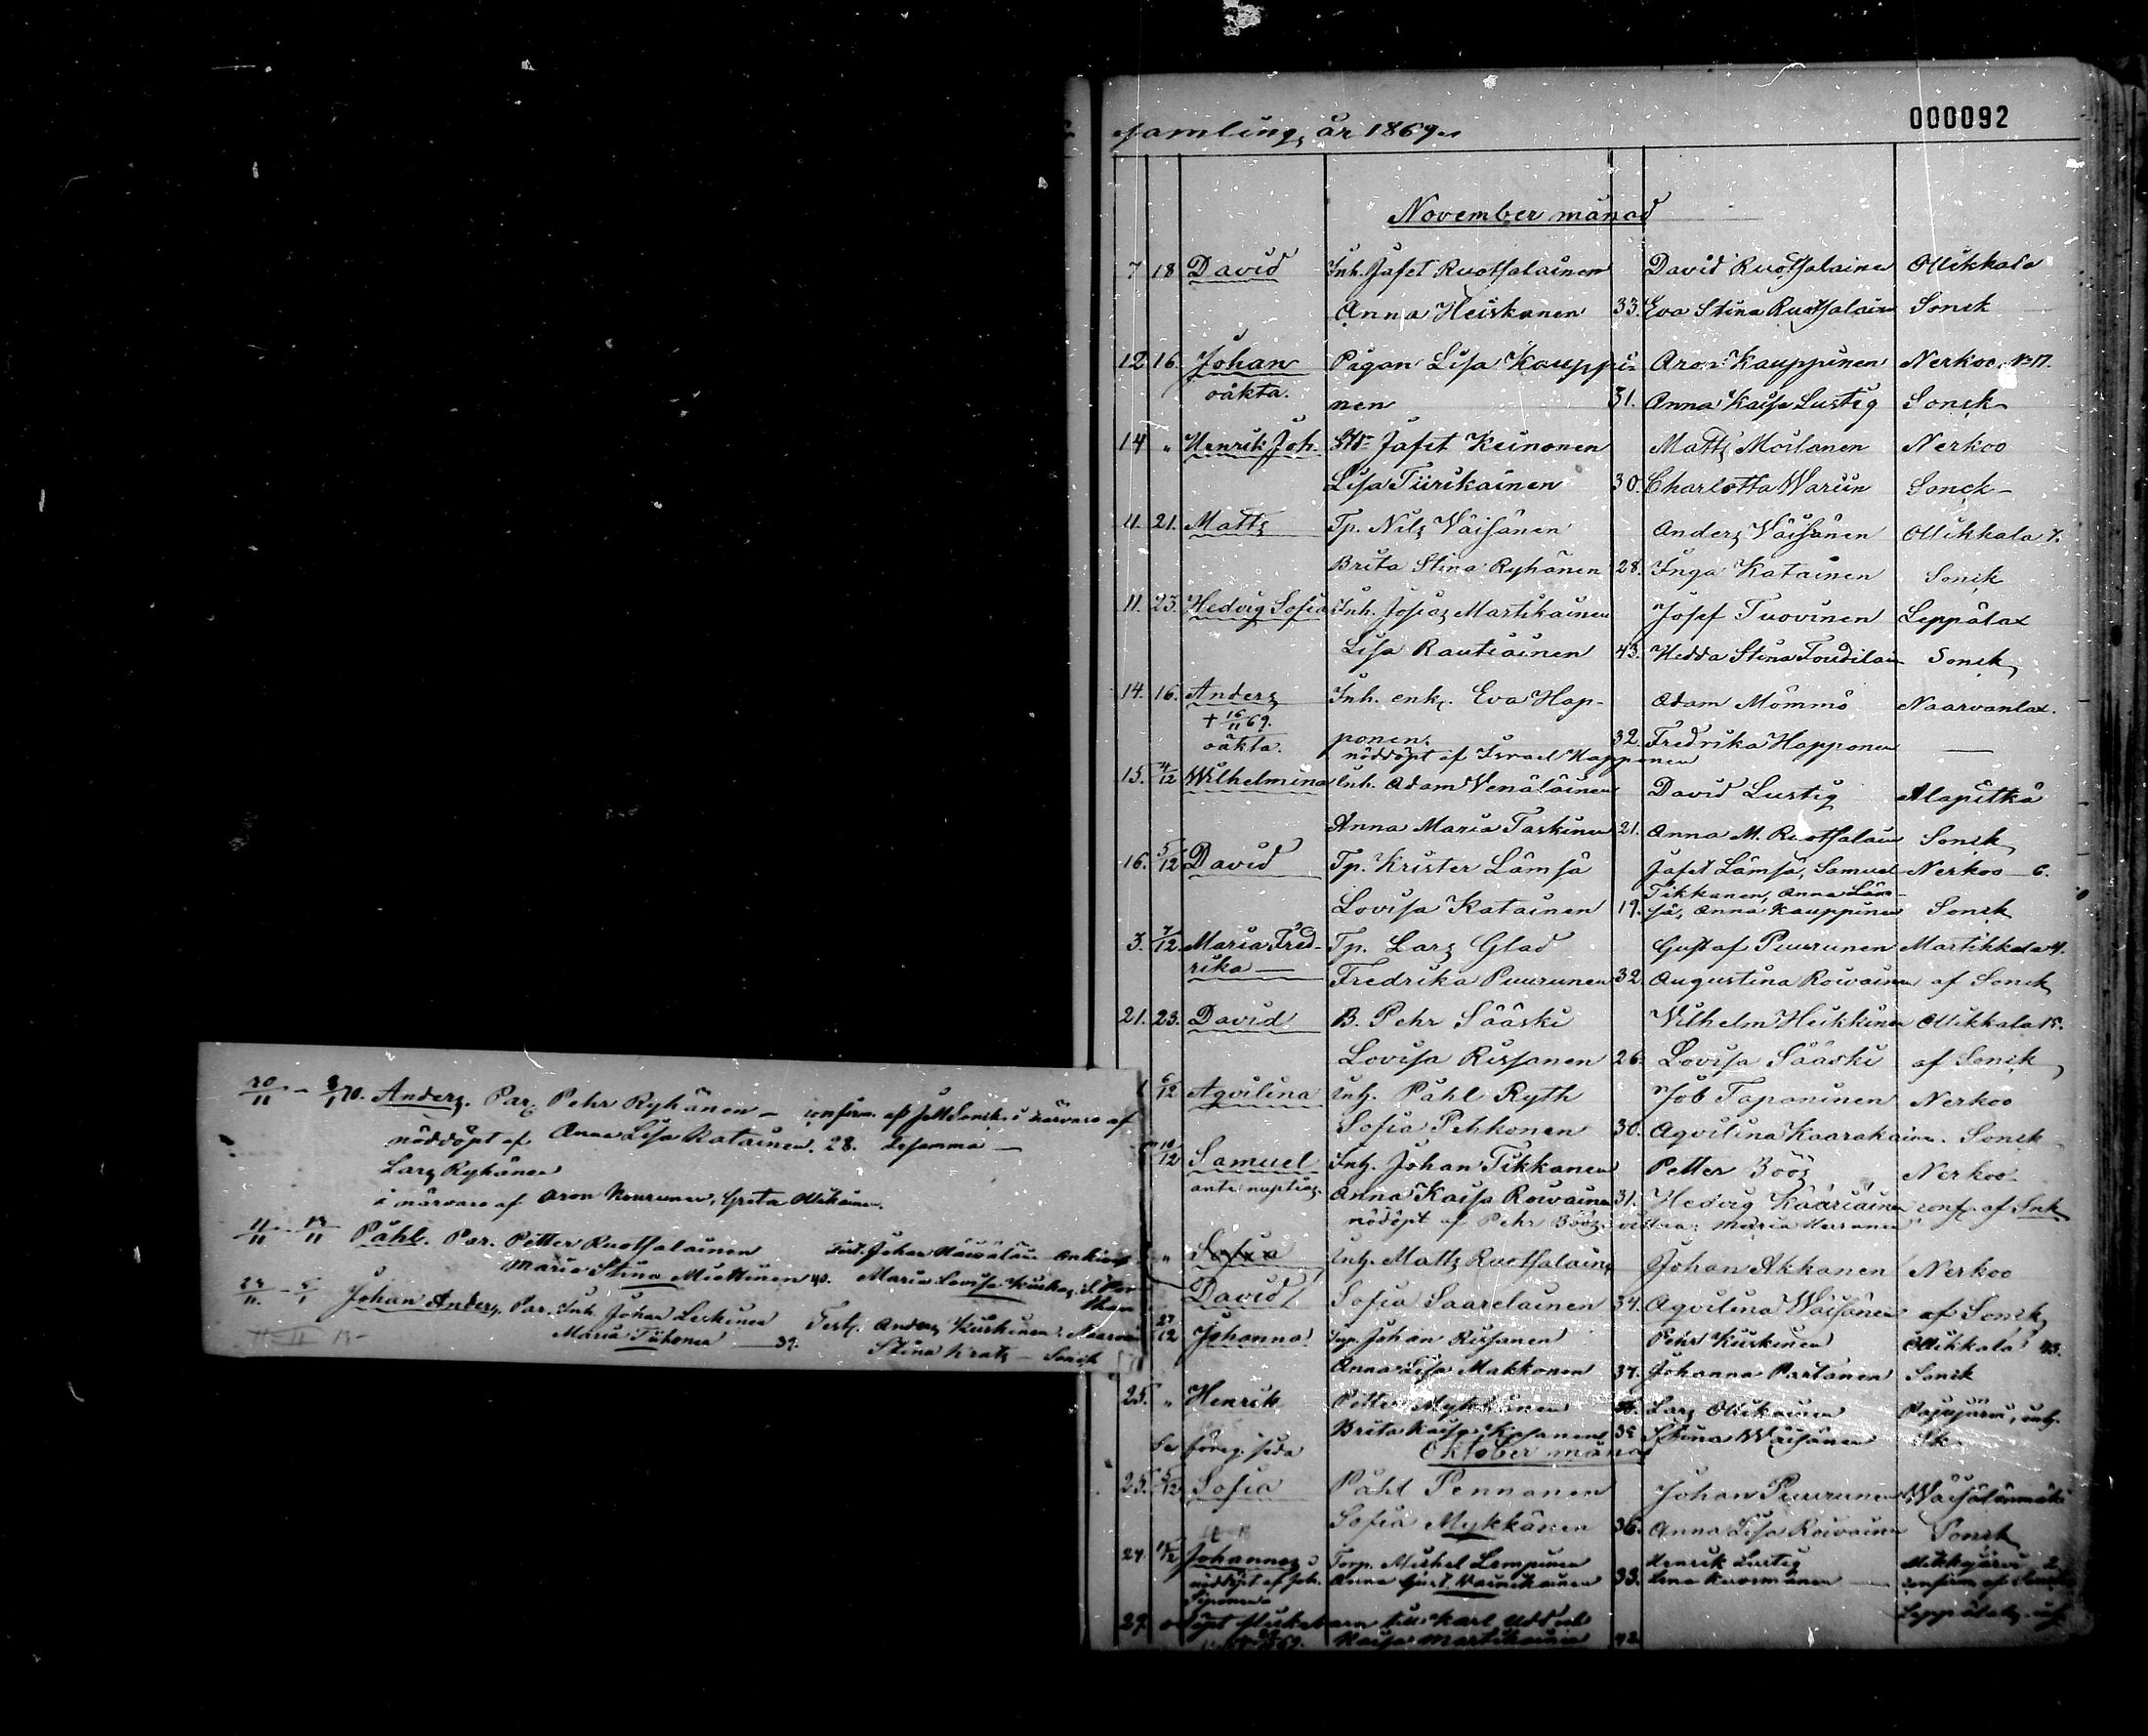 samling, år 1869.
000092
November månad
7 18 David Inh. Jafet Ruotsalainen David Ruotsalainen Ollikkala
Anna Heiskanen 33. Eva Stina Ruotsalain Sonck
12 16. Johan Pigan Lisa Kauppi- Aron Kauppinen Nerkoo, No 17.
oäkta. nen 31. Anna Kaisa Lustig Sonck
14 " Henrik Joh. Jafet Keinonen Matts Moilanen Nerkoo
Lisa Tiirikainen 30. Charlotta Warein Sonck
11. 21. Matts Tp. Nils Wäisänen Anders Wäisänen Ollikkala 7.
Brita Stina Ryhänen 28. Inga Katainen Sonck
11. 23. Hedvig Sofia Inh. Josias Martikainen Josef Tuovinen Leppälax
Lisa Rautiainen 43. Hedda Stina Sonck
14. 16. Anders Inh. enk. Eva Hap- Adam Mömmö Naarvanlax.
+ 16/11 69.
oäkta. ponen. 32. Fredrika Happonen —
nöddöpt af Israel Happonen
15. 4/12 Wilhelmina Inh. Adam Wenäläinen David Lustig Alapitkä
Anna Maria Taskinen 21. Anna M. Ruotsalain Sonck
16. 5/12 David Tp. Krister Lämsä Jafet Lämsä, Samuel Nerkoo 6.
Tikkanen, Anna Läm-
Lovisa Katainen 19. sä, Anna Kauppinen Sonck
3. 7/12. Maria Fred- Tp. Lars Glad Gustaf Puurunen Martikkala 4.
rika — Fredrika Puurunen 32. Augustina Roivainen af Sonck
21. 23. David B. Pehr Sääski Vilhelm Heikkinen Ollikkala 15.
Lovisa Rissanen 26. Lovisa Sääski af Sonck
6/12 Aqvilina Inh. Påhl Ryth Job Taponinen Nerkoo
Sofia Pehkonen 30. Aqvilina Kaarakainen. Sonck
10/12 Samuel Inh. Johan Tikkanen Petter Böös Nerkoo
ante nuptias. Anna Kaisa Rowainen 31. Hedvig Kääriäinen conf. af Snk
nödöpt af Pehr Böös. Maria
" Sofia Inh. Matts Ruotsalain Johan Akkanen Nerkoo
David Sofia Saarelainen 34. Aqvilina Wäisänen af Sonck
27/12 Johanna Johan Rissanen Pehr Kuskinen Ollikkala 43.
Anna Lisa Makkonen 37. Johanna Partanen Sonck
25. " Henrik Petter Mykkänen Lars Ollikainen Pajujärvi, inh.
Se föreg. sida Brita Kaisa Kasanen 35 Stina Wäisänen Sk.
Oktober månad
25. 5/12 Sofia Påhl Pennanen Johan Puurunen Wäisälänmäki
Sofia Mykkänen 36. Anna Lisa Roivainen Sonck
27 Johannes Torp. Michel Lempinen Henrik Lustig 2
nöddöpt af Joh. Anna Gust. 33. Lena Kuosmanen — confirm. af Sonck
Siponen
29. odöpt flickebarn till Karl
69. Kaisa Martikainen 42.
20/11 - 8/1 70. Anders. Par. Pehr Ryhänen — confirm. af Sonck i närvaro af
nöddöpt af Anna Lisa Katainen. 28. desamma —
Lars Ryhänen
i närvaro af Aron Nourunen, Greta Ollikainen.
Påhl. Par. Petter Ruotsalainen Test. Johan
Maria Stina Miettinen 40. Maria Lovisa
Johan Anders, Par. Inh. Johan Leskinen Test. Anders Kuskinen. Naarva
Maria Tiihonen — 39. Stina Krats — Sonck